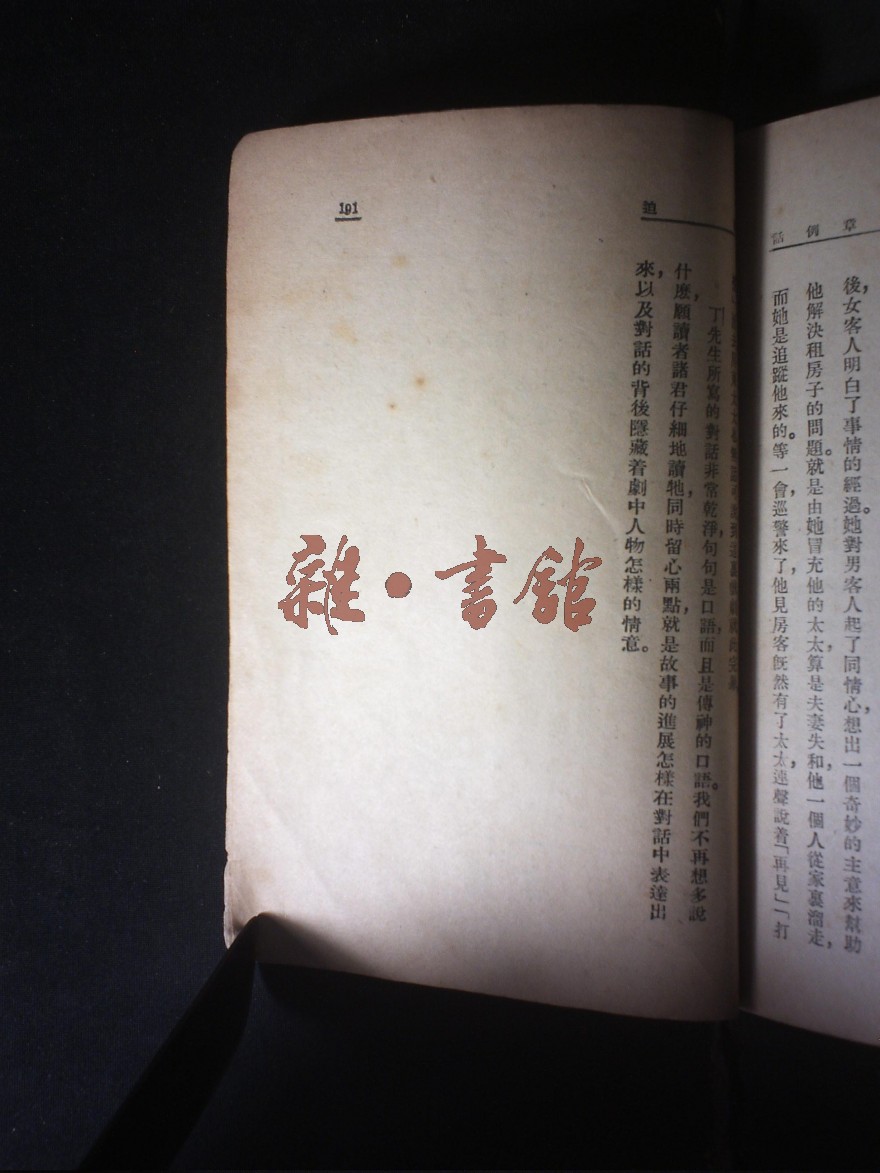 章例話
後,女客人明白了事情的經過。她對男客人起了同情心,想出一個奇妙的主意來幫助
他解決租房子的問題。就是由她冒充他的太太,算是夫妻失和,他一個人從家裏溜走,
而她是追蹤他來的。等一會,巡警來了,他見房客旣然有了太太,連聲說着「再見」「打
迫
191
丁先生所寫的對話非常乾淨,句句是口語,而且是傳神的口語。我們不再想多說
什麽,願讀者諸君仔細地讀牠,同時留心兩點,就是故事的進展怎樣在對話中表達出
來,以及對話的背後隱藏着劇中人物怎樣的情意。
雜·書館